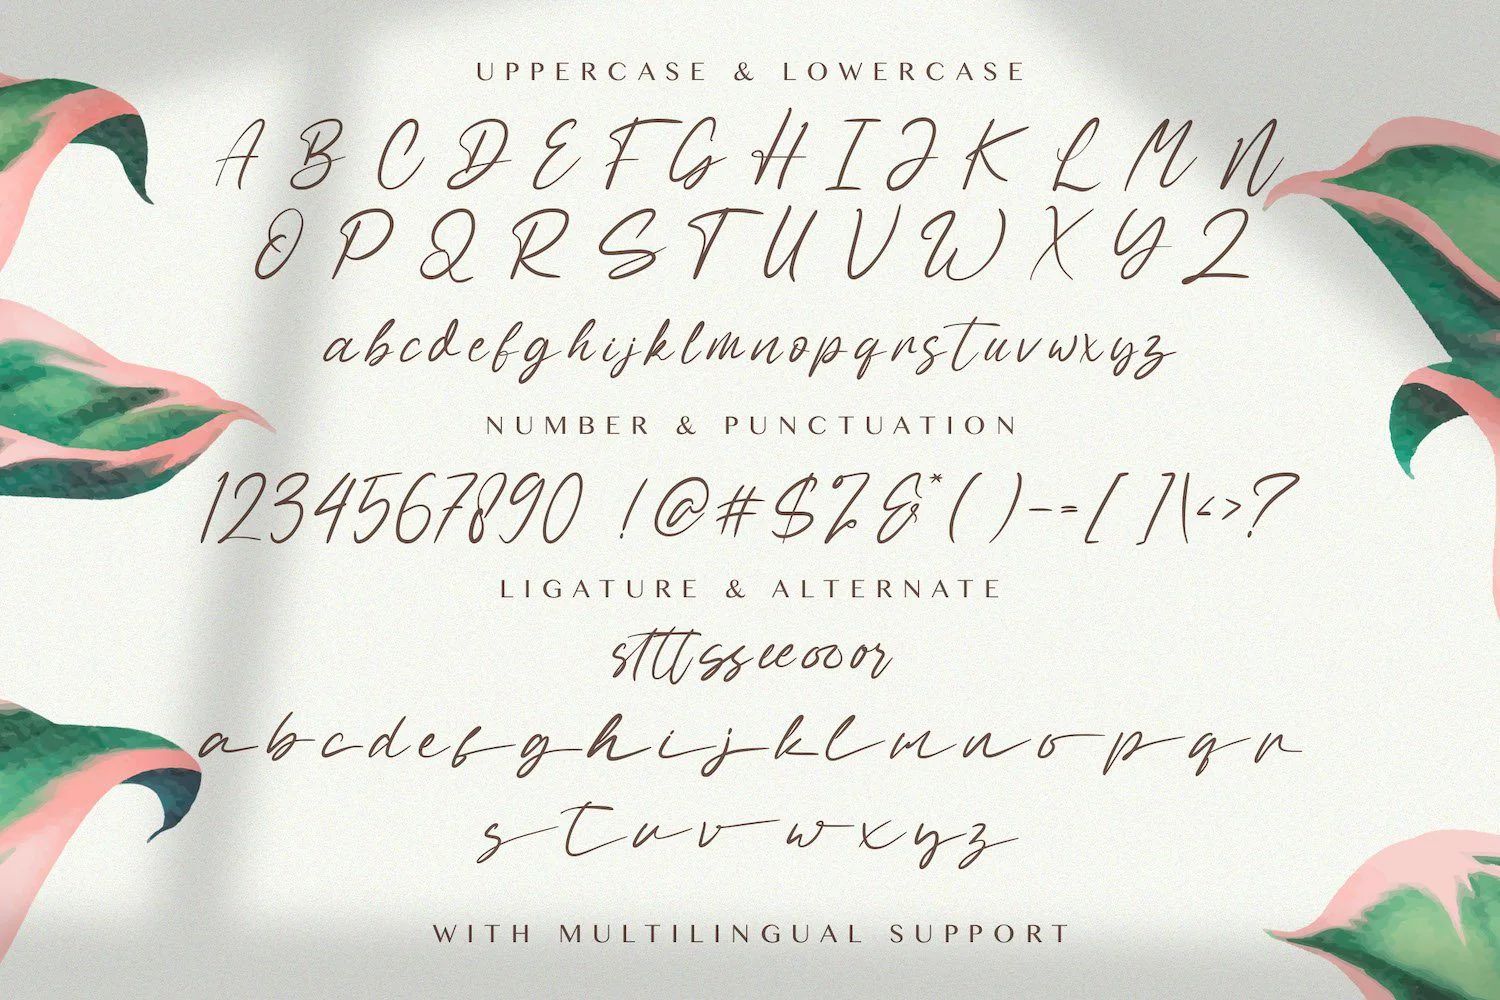 UPPERCASE & LOWERCASE
A B C D E F G H I J K L M N
O P Q R S T U V W X Y Z
a b c d e f g h i j k l m n o p q r s t u v w x y z
NUMBER & PUNCTUATION
1234567890 !@#$%&*( )-=[ ]\<>?
LIGATURE & ALTERNATE
st tt ss ee oo or
a b c d e f g h i j k l m n o p q r
s t u v w x y z
WITH MULTILINGUAL SUPPORT